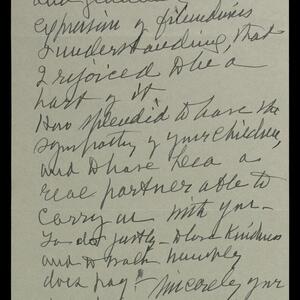 and
expression of friendliness
& understanding, that
I rejoiced to be a
part of it
How splendid to have the
sympathy of your children,
and to have Lea a
real partner able to
carry on with you -
To do justly - to love kindness
and to walk humbly
does pay - Sincerely your